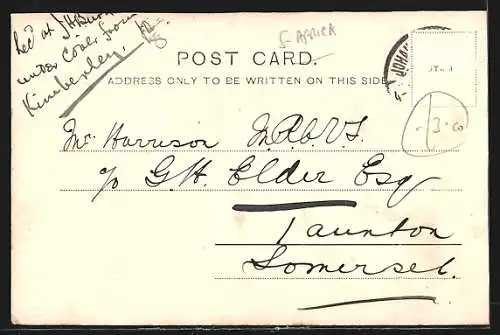 Rec'd at J H Burn
under cover from
Kimberley,
S. AFRICA
POST CARD.
ADDRESS ONLY TO BE WRITTEN ON THIS SIDE
Mr. Harrison M.R.C.V.S.
c/o G. H. Elder Esq
Taunton
Somerset.